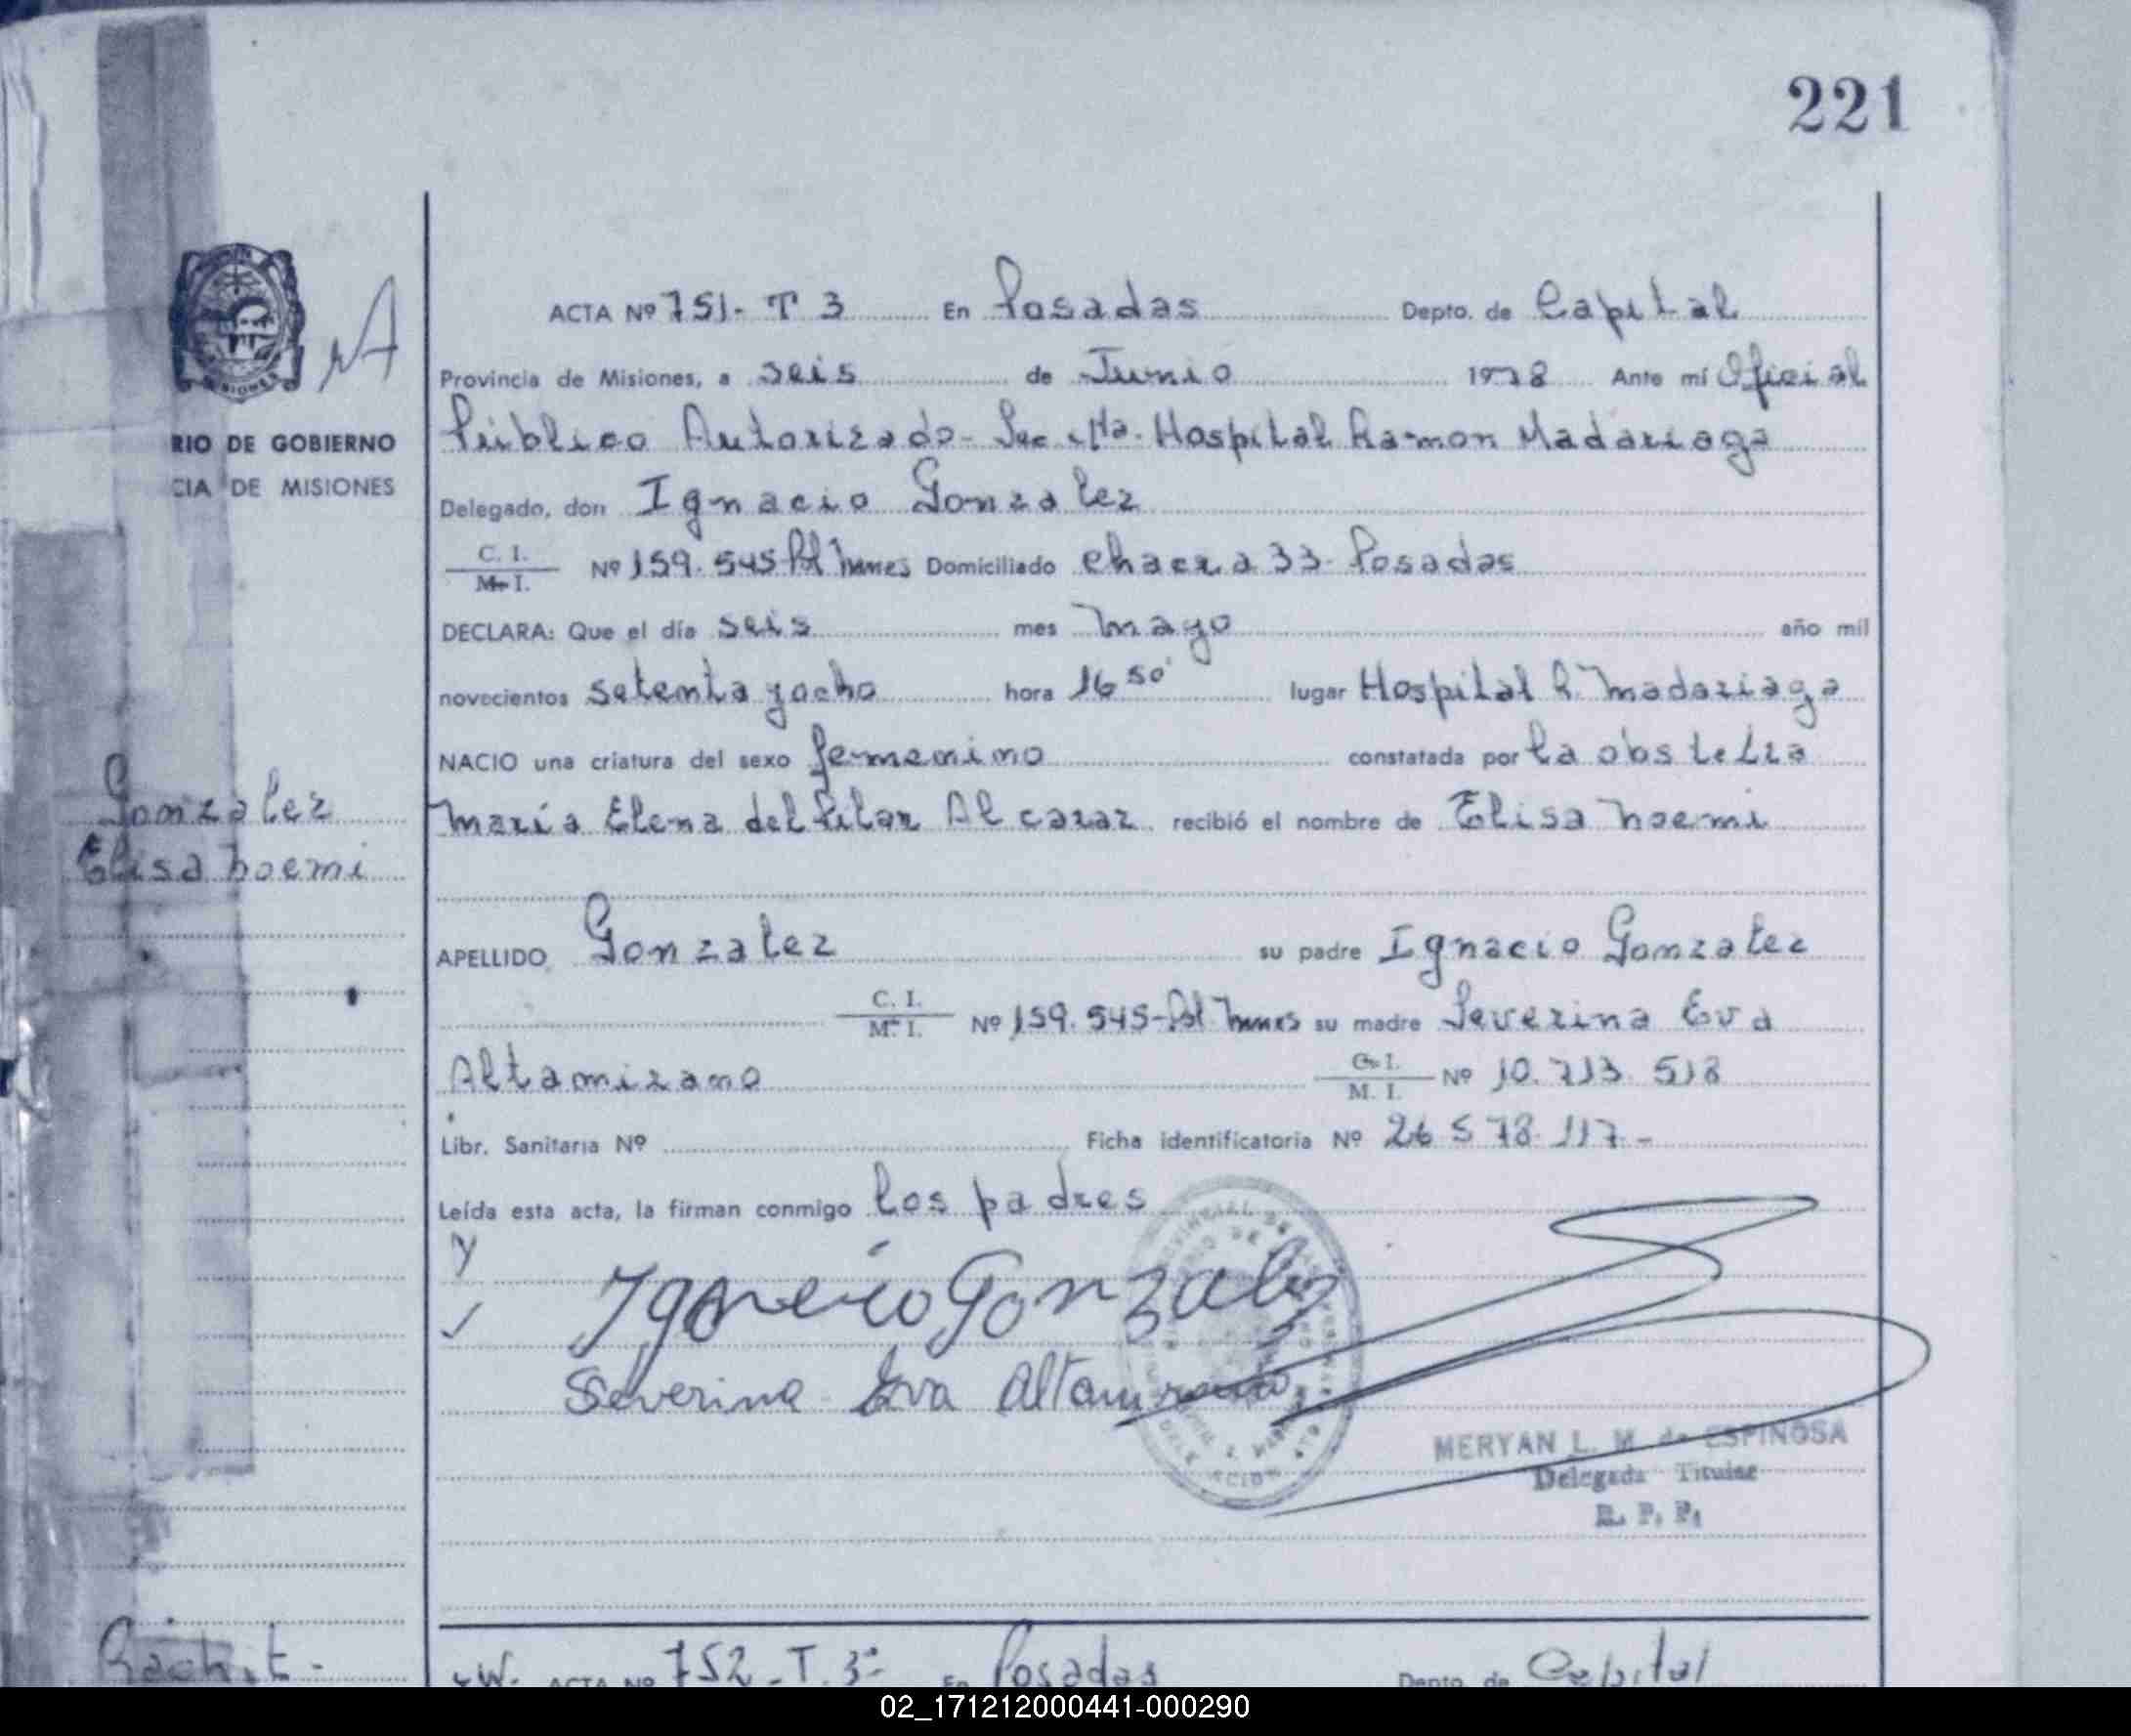 221
ACTA Nº 751- T 3 En Posadas Depto. de Capital
Provincia de Misiones, a seis de Junio 1978 Ante mí Oficial
RIO DE GOBIERNO
CIA DE MISIONES
Público Autorizado- Sec 4ta- Hospital Ramon Madariaga
Delegado, don Ignacio Gonzalez
C. I.
M. I. Nº 159.545 Pol Mnes Domiciliado Chacra 33- Posadas
DECLARA: Que el día seis mes Mayo año mil
novecientos setenta y ocho hora 16 50' lugar Hospital R. Madariaga
NACIO una criatura del sexo femenino constatada por la obstetra
Gonzalez
Elisa Noemi
María Elena del Pilar Alcaraz recibió el nombre de Elisa Noemi
APELLIDO Gonzalez su padre Ignacio Gonzalez
C. I.
M. I. Nº 159.545-Pol Mnes su madre Severina Eva
Altamirano C. I.
M. I. Nº 10.713.518
Libr. Sanitaria Nº Ficha identificatoria Nº 26 578.117-
Leída esta acta, la firman conmigo los padres
Ignacio Gonzalez
Severina Eva Altamirano
MERYAN L. M. de ESPINOSA
Delegada Titular
R. P. P.
ACTA Nº 752-T.3º En Posadas Depto. de Capital
02_171212000441-000290